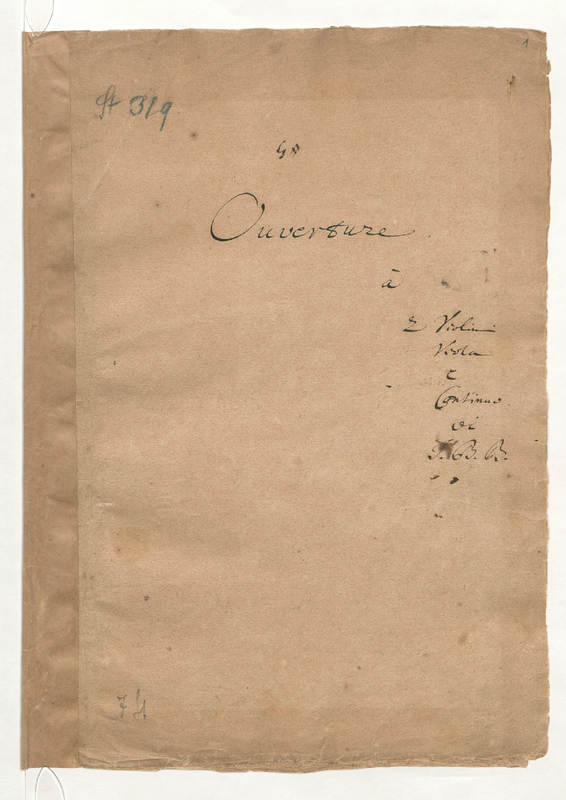 1
St 319
G♮
Ouverture
à
2 Violini
Viola
e
Continuo
di
J. B. B.